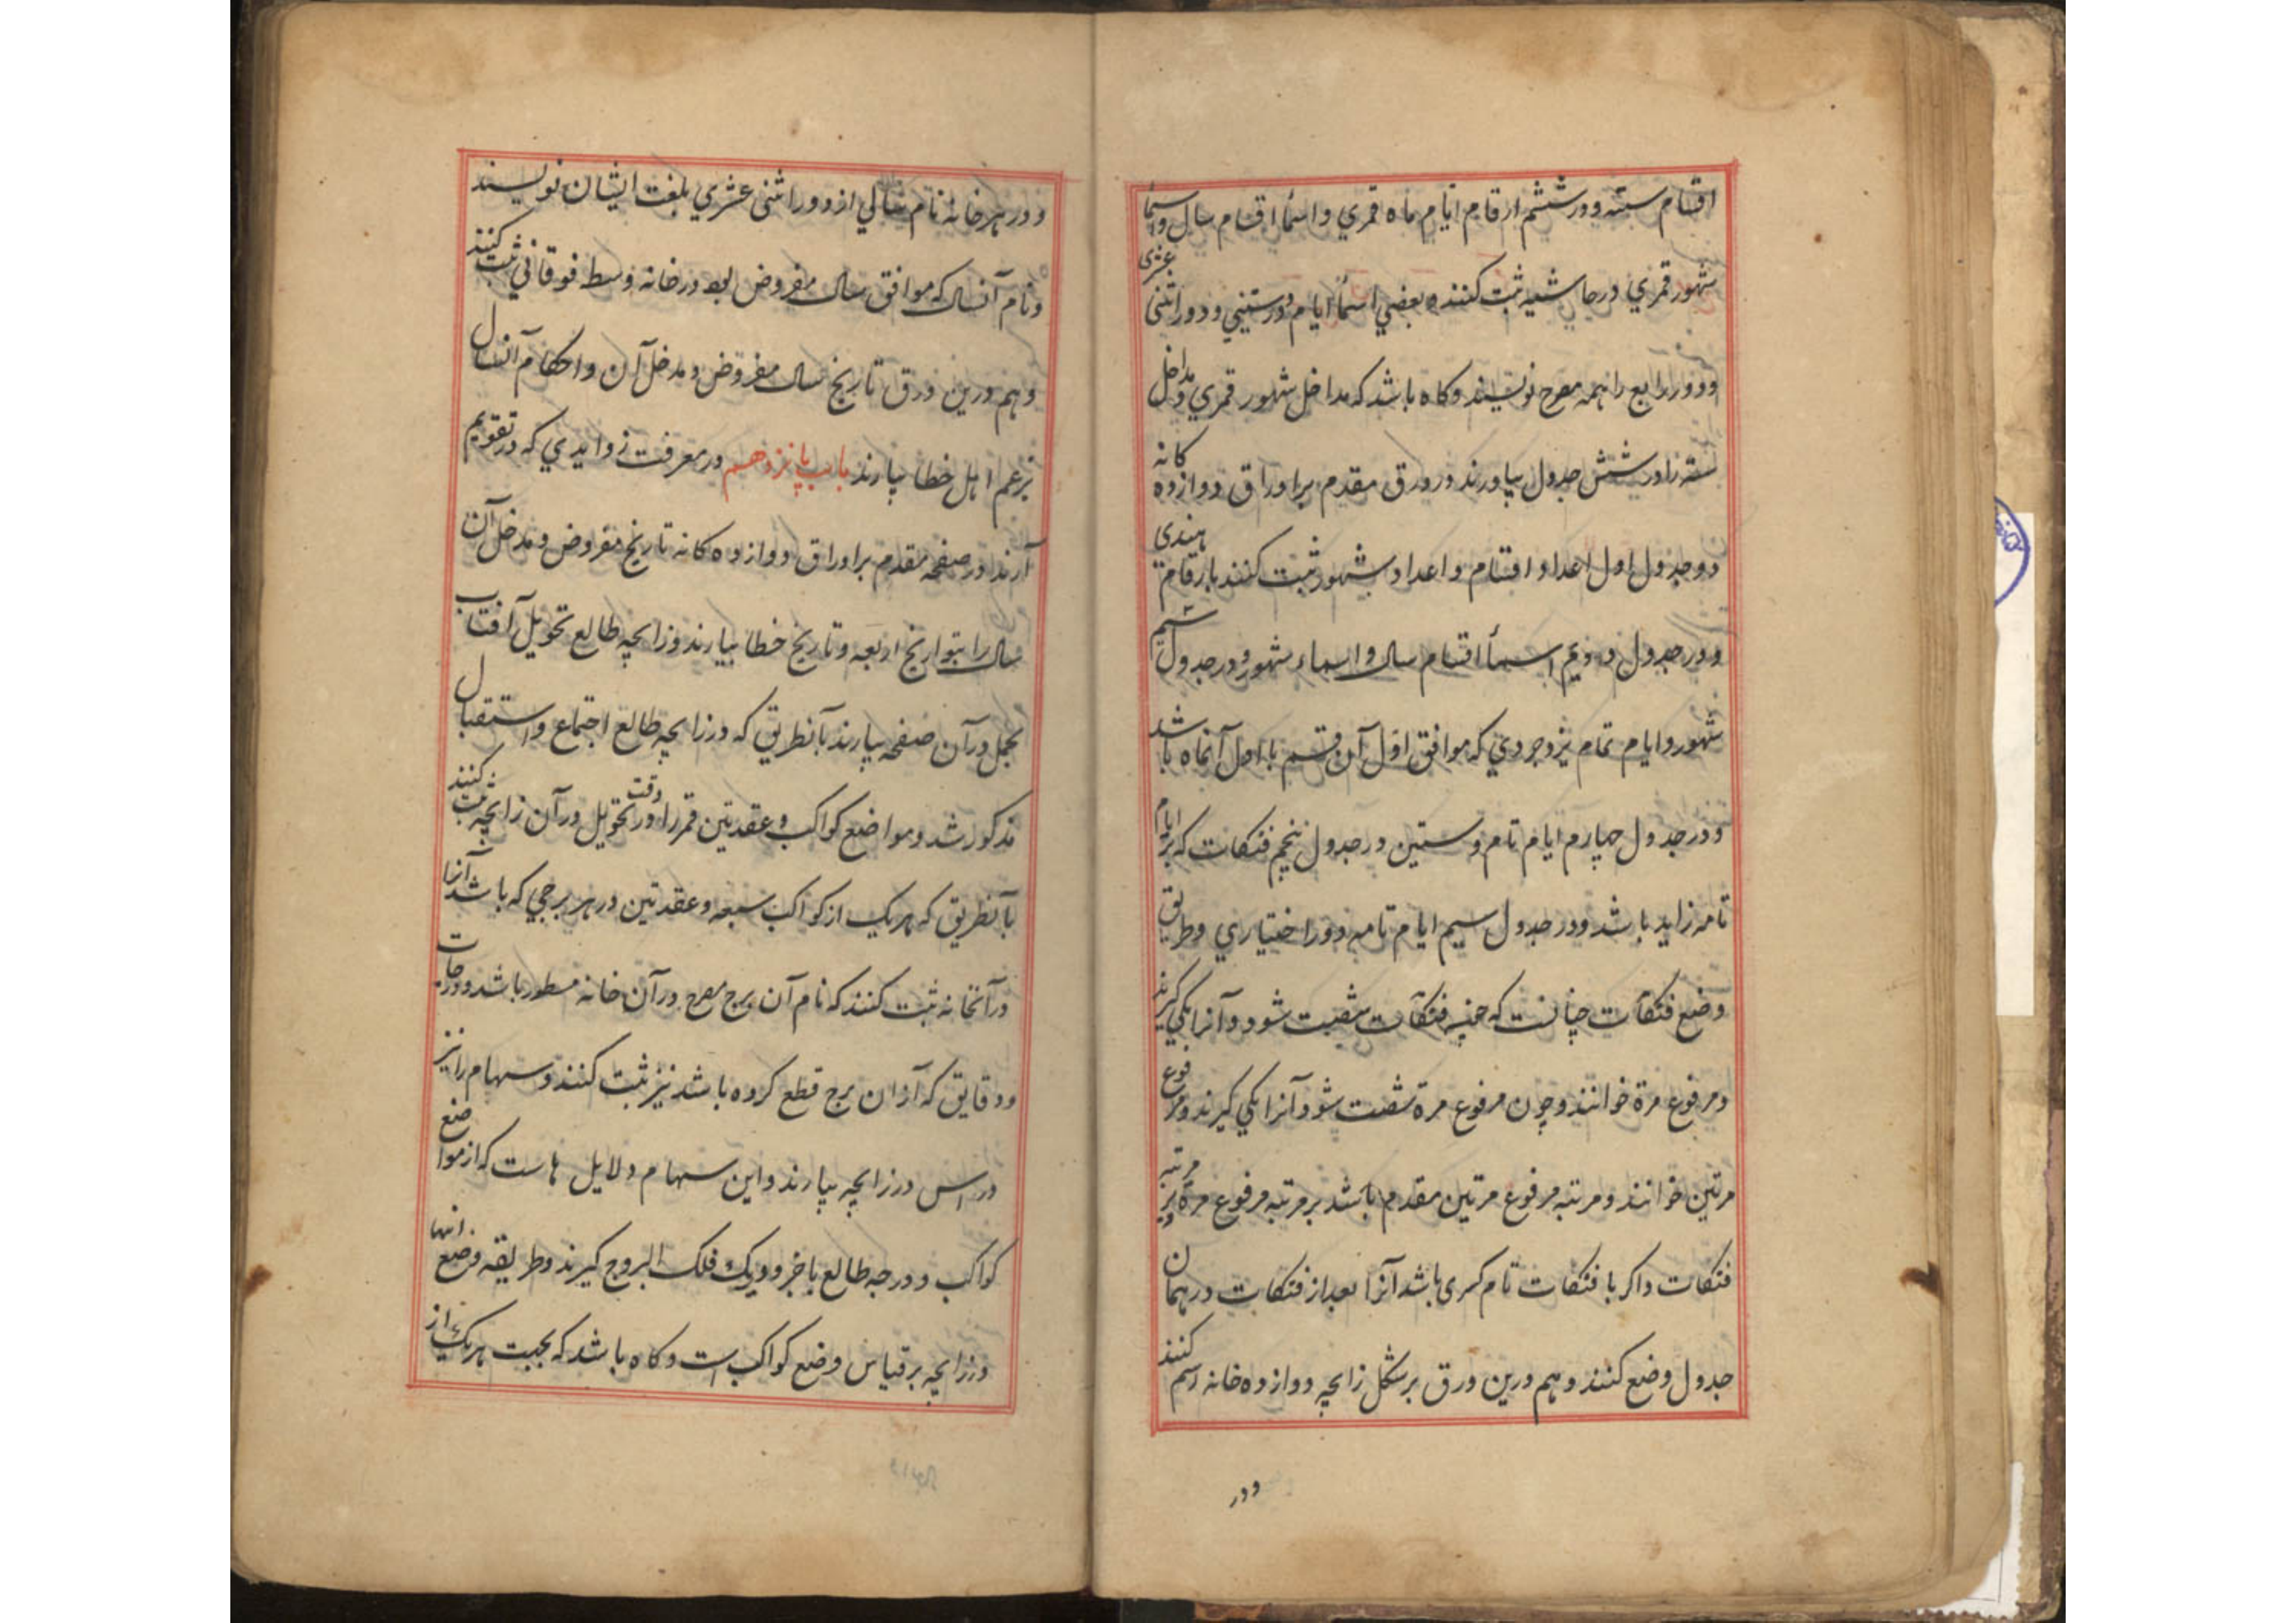 اقسام سته و در ششم ارقام ایام ماه قمري و اسمأ اقسام سال و اسمأ
شهور قمري در حاشیه ثبت کنند و بعضي اسمأ ایام و در ستیني و دور اثنی عشری
و دور رابع را همه مصرح نویسند و کاه باشد که مداخل شهور قمري و مداخل
سته را در شش جدول بیاورند در ورق مقدم بر اوراق دوازده کانه
و در جدول اول اعداد اقسام و اعداد شهور ثبت کنند بارقام هندی
و در جدول دویم اسمأ اقسام سال و اسماء شهور و در جدول سیم
شهور و ایام تمام یزدجردي که موافق اول آن قسم با اول آنماه باشد
و در جدول چهارم ایام تام و ستین در جدول پنجم فنکات که بر ایام
تامه زاید باشد و در جدول سیم ایام تامه دور اختیاري و طریق
وضع فنکات چنانست که چون فنکات شصت شود و آنرا یکي کیرند
و مرفوع مرة خوانند و چون مرفوع مرة شصت شود آنرا یکي کیرند و مرفوع
مرتین خوانند و مرتبه مرفوع مرتین مقدم باشد بر مرتبه مرفوع مرة و بر مرتبه
فنکات و اکر با فنکات تام کسری باشد آنرا بعد از فنکات در همان
جدول وضع کنند و هم درین ورق بر شکل زایچه دوازده خانه رسم کنند
و در
و در هر خانه نام سالي از دور اثنی عشري بلغت ایشان نویسند
و نام آنسال که موافق سال مفروض بود در خانه وسط فوقاني ثبت کنند
و هم درین ورق تاریخ سال مفروض و مدخل آن و احکام آنسال
بزعم اهل خطا بیارند باب پانزدهم در معرفت زوایدي که در تقویم
آرند در صفحه مقدم بر اوراق دوازده کانه تاریخ مفروض و مدخل آن
سال را بتواریخ اربعه و تاریخ خطا بیارند و زایچه طالع تحویل آفتاب
بحمل در آن صفحه بیارند بآنطریق که در زایچه طالع اجتماع و استقبال
مذکور شد و مواضع کواکب و عقدتین قمر را در وقت تحویل در آن زایچه ثبت کنند
بآنطریق که هر یک از کواکب سبعه و عقدتین در هر برجي که باشد آنرا
در آنخانه ثبت کنند که نام آن برج مصرح در آن خانه مسطور باشد و درجات
و دقایق که از آن برج قطع کرده باشد نیز ثبت کنند و سهام را نیز
در اس در زایچه بیارند و این سهام دلایل هاست که از مواضع
کواکب و درجه طالع باخر و دیک فلک البروج کیرند و طریقه وضع انها
در زایچه بر قیاس وضع کواکب است و کاه باشد که بجهت هر یک از